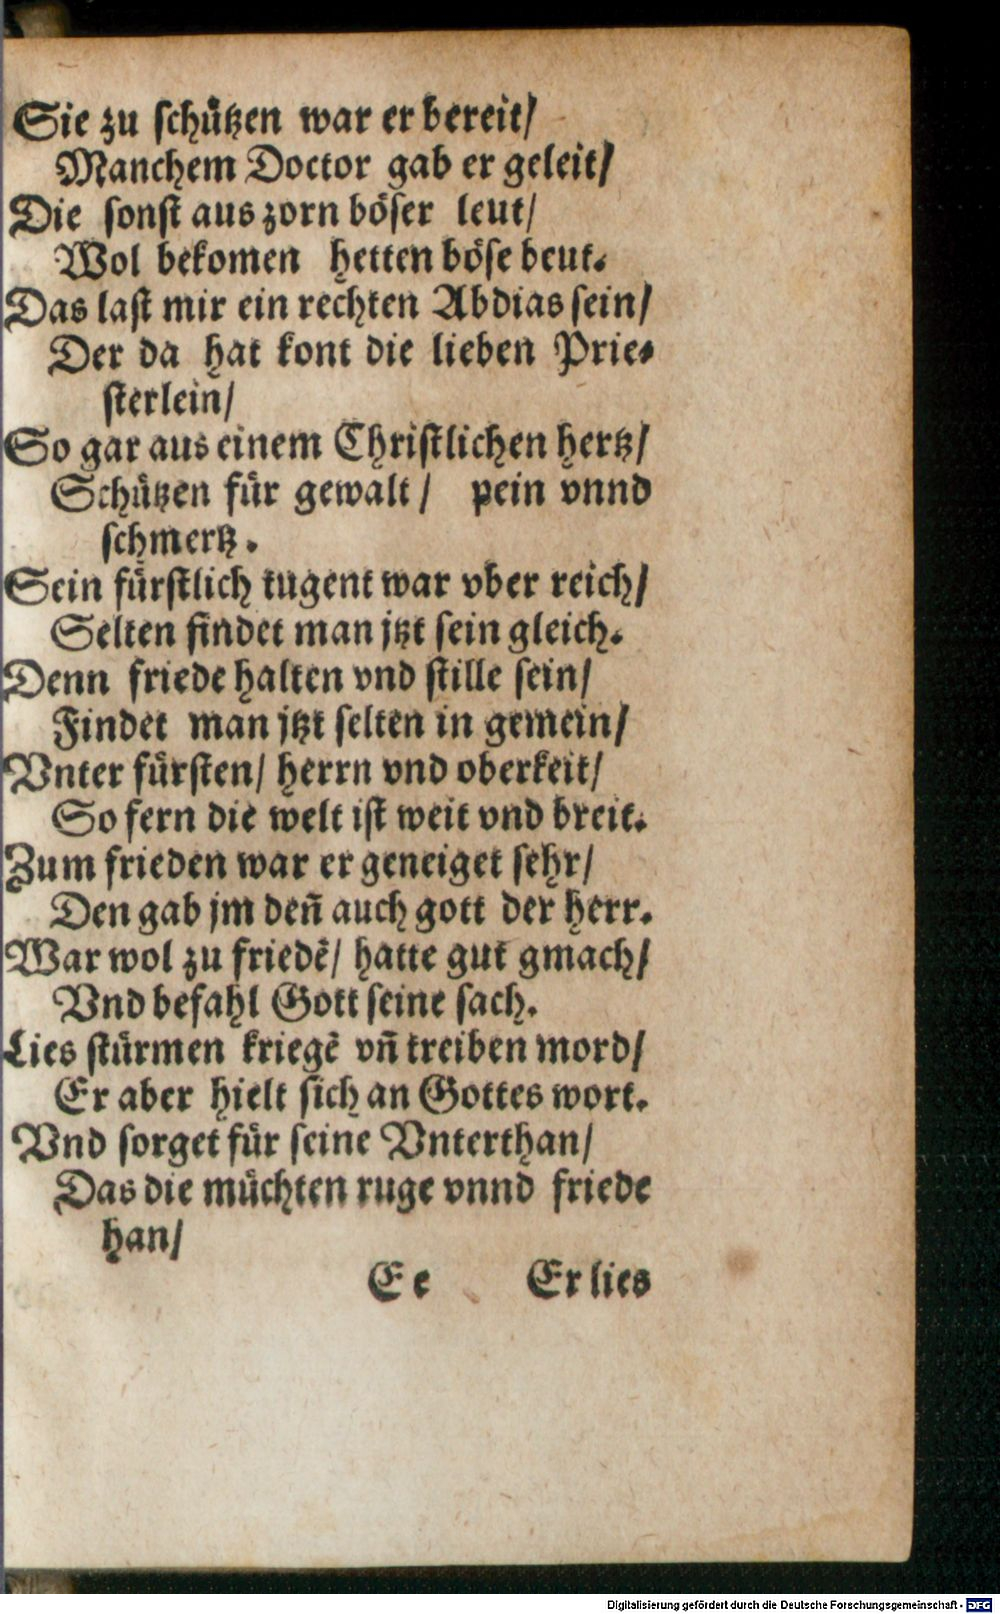 Sie zu schützen war er bereit/
Manchem Doctor gab er geleit/
Die sonst aus zorn böser leut/
Wol bekomen hetten böse beut.
Das last mir ein rechten Abdias sein/
Der da hat kont die lieben Prie-
sterlein/
So gar aus einem Christlichen hertz/
Schützen für gewalt/ pein vnnd
schmertz.
Sein fürstlich tugent war vber reich/
Selten findet man jtzt sein gleich.
Denn friede halten vnd stille sein/
Findet man jtzt selten in gemein/
Vnter fürsten/ herrn vnd oberkeit/
So fern die welt ist weit vnd breit.
Zum frieden war er geneiget sehr/
Den gab jm deñ auch gott der herr.
War wol zu friedẽ/ hatte gut gmach/
Vnd befahl Gott seine sach.
Lies stürmen kriegẽ vñ treiben mord/
Er aber hielt sich an Gottes wort.
Vnd sorget für seine Vnterthan/
Das die müchten ruge vnnd friede
han/
Ee Er lies
Digitalisierung gefördert durch die Deutsche Forschungsgemeinschaft - DFG